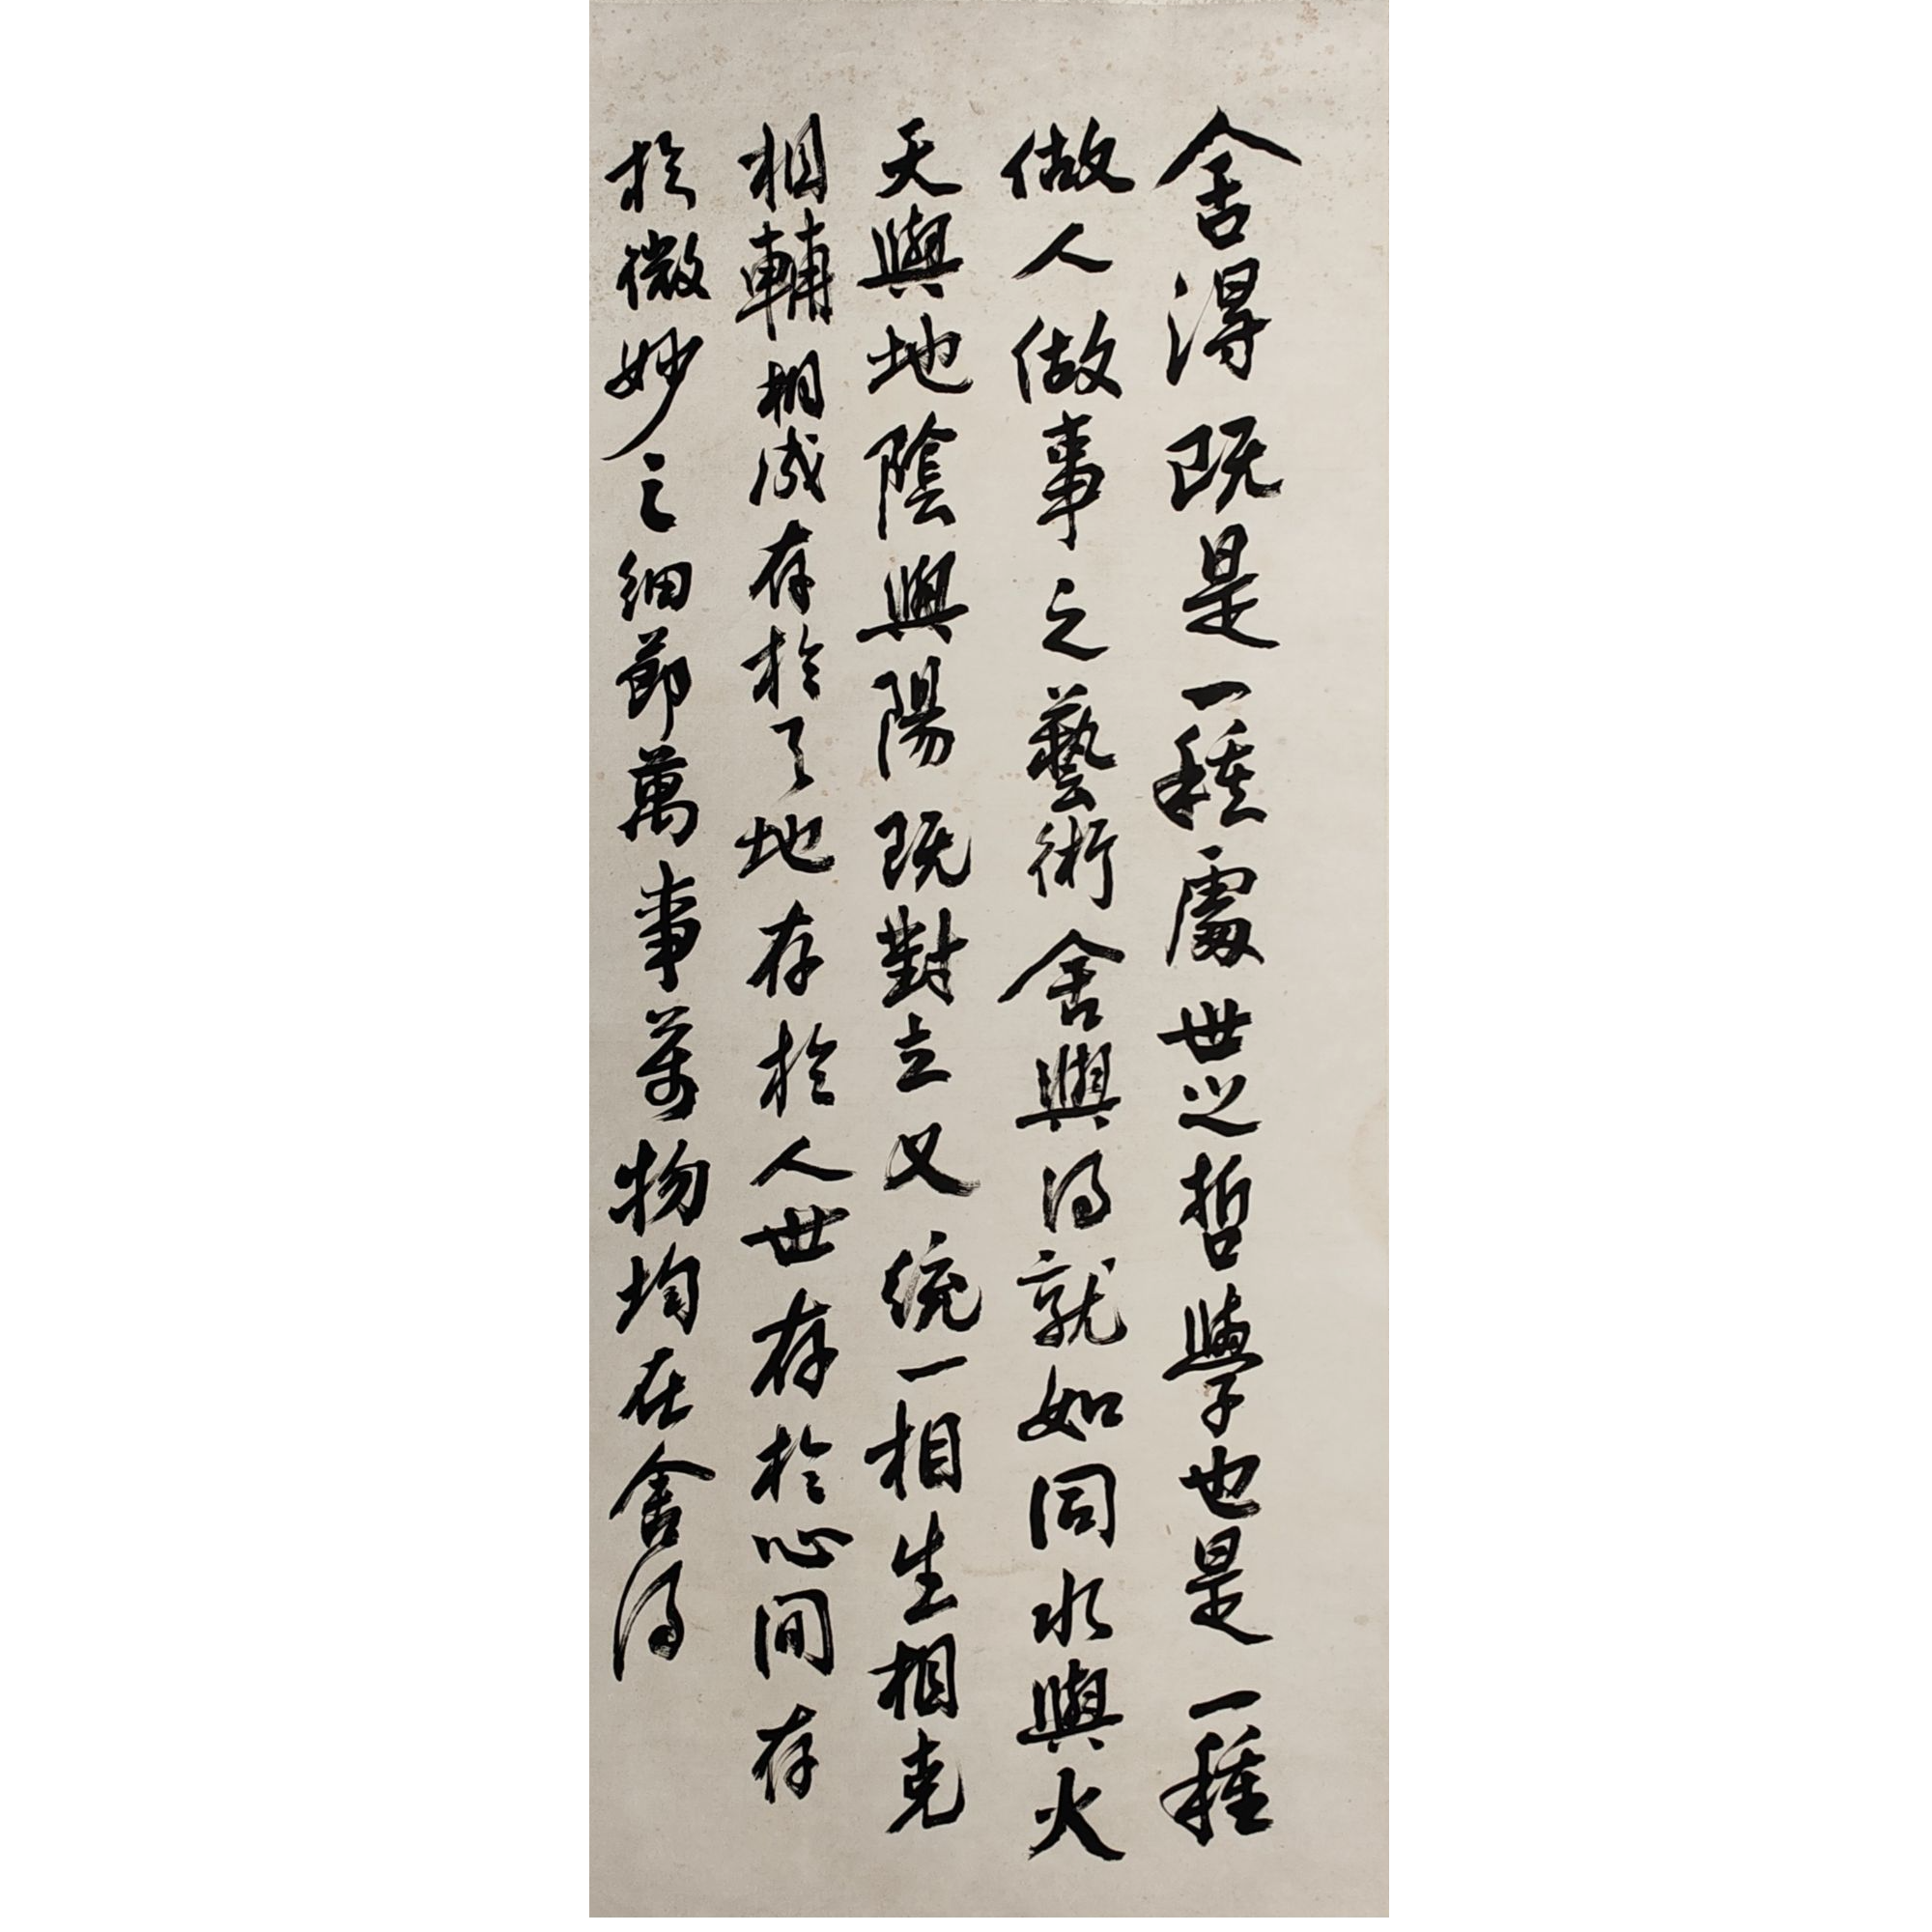 舍得既是一種處世之哲學也是一種
做人做事之藝術舍與得就如同水與火
天與地陰與陽既對立又統一相生相克
相輔相成存於天地存於人世存於心间存
於微妙之细節萬事萬物均在舍得